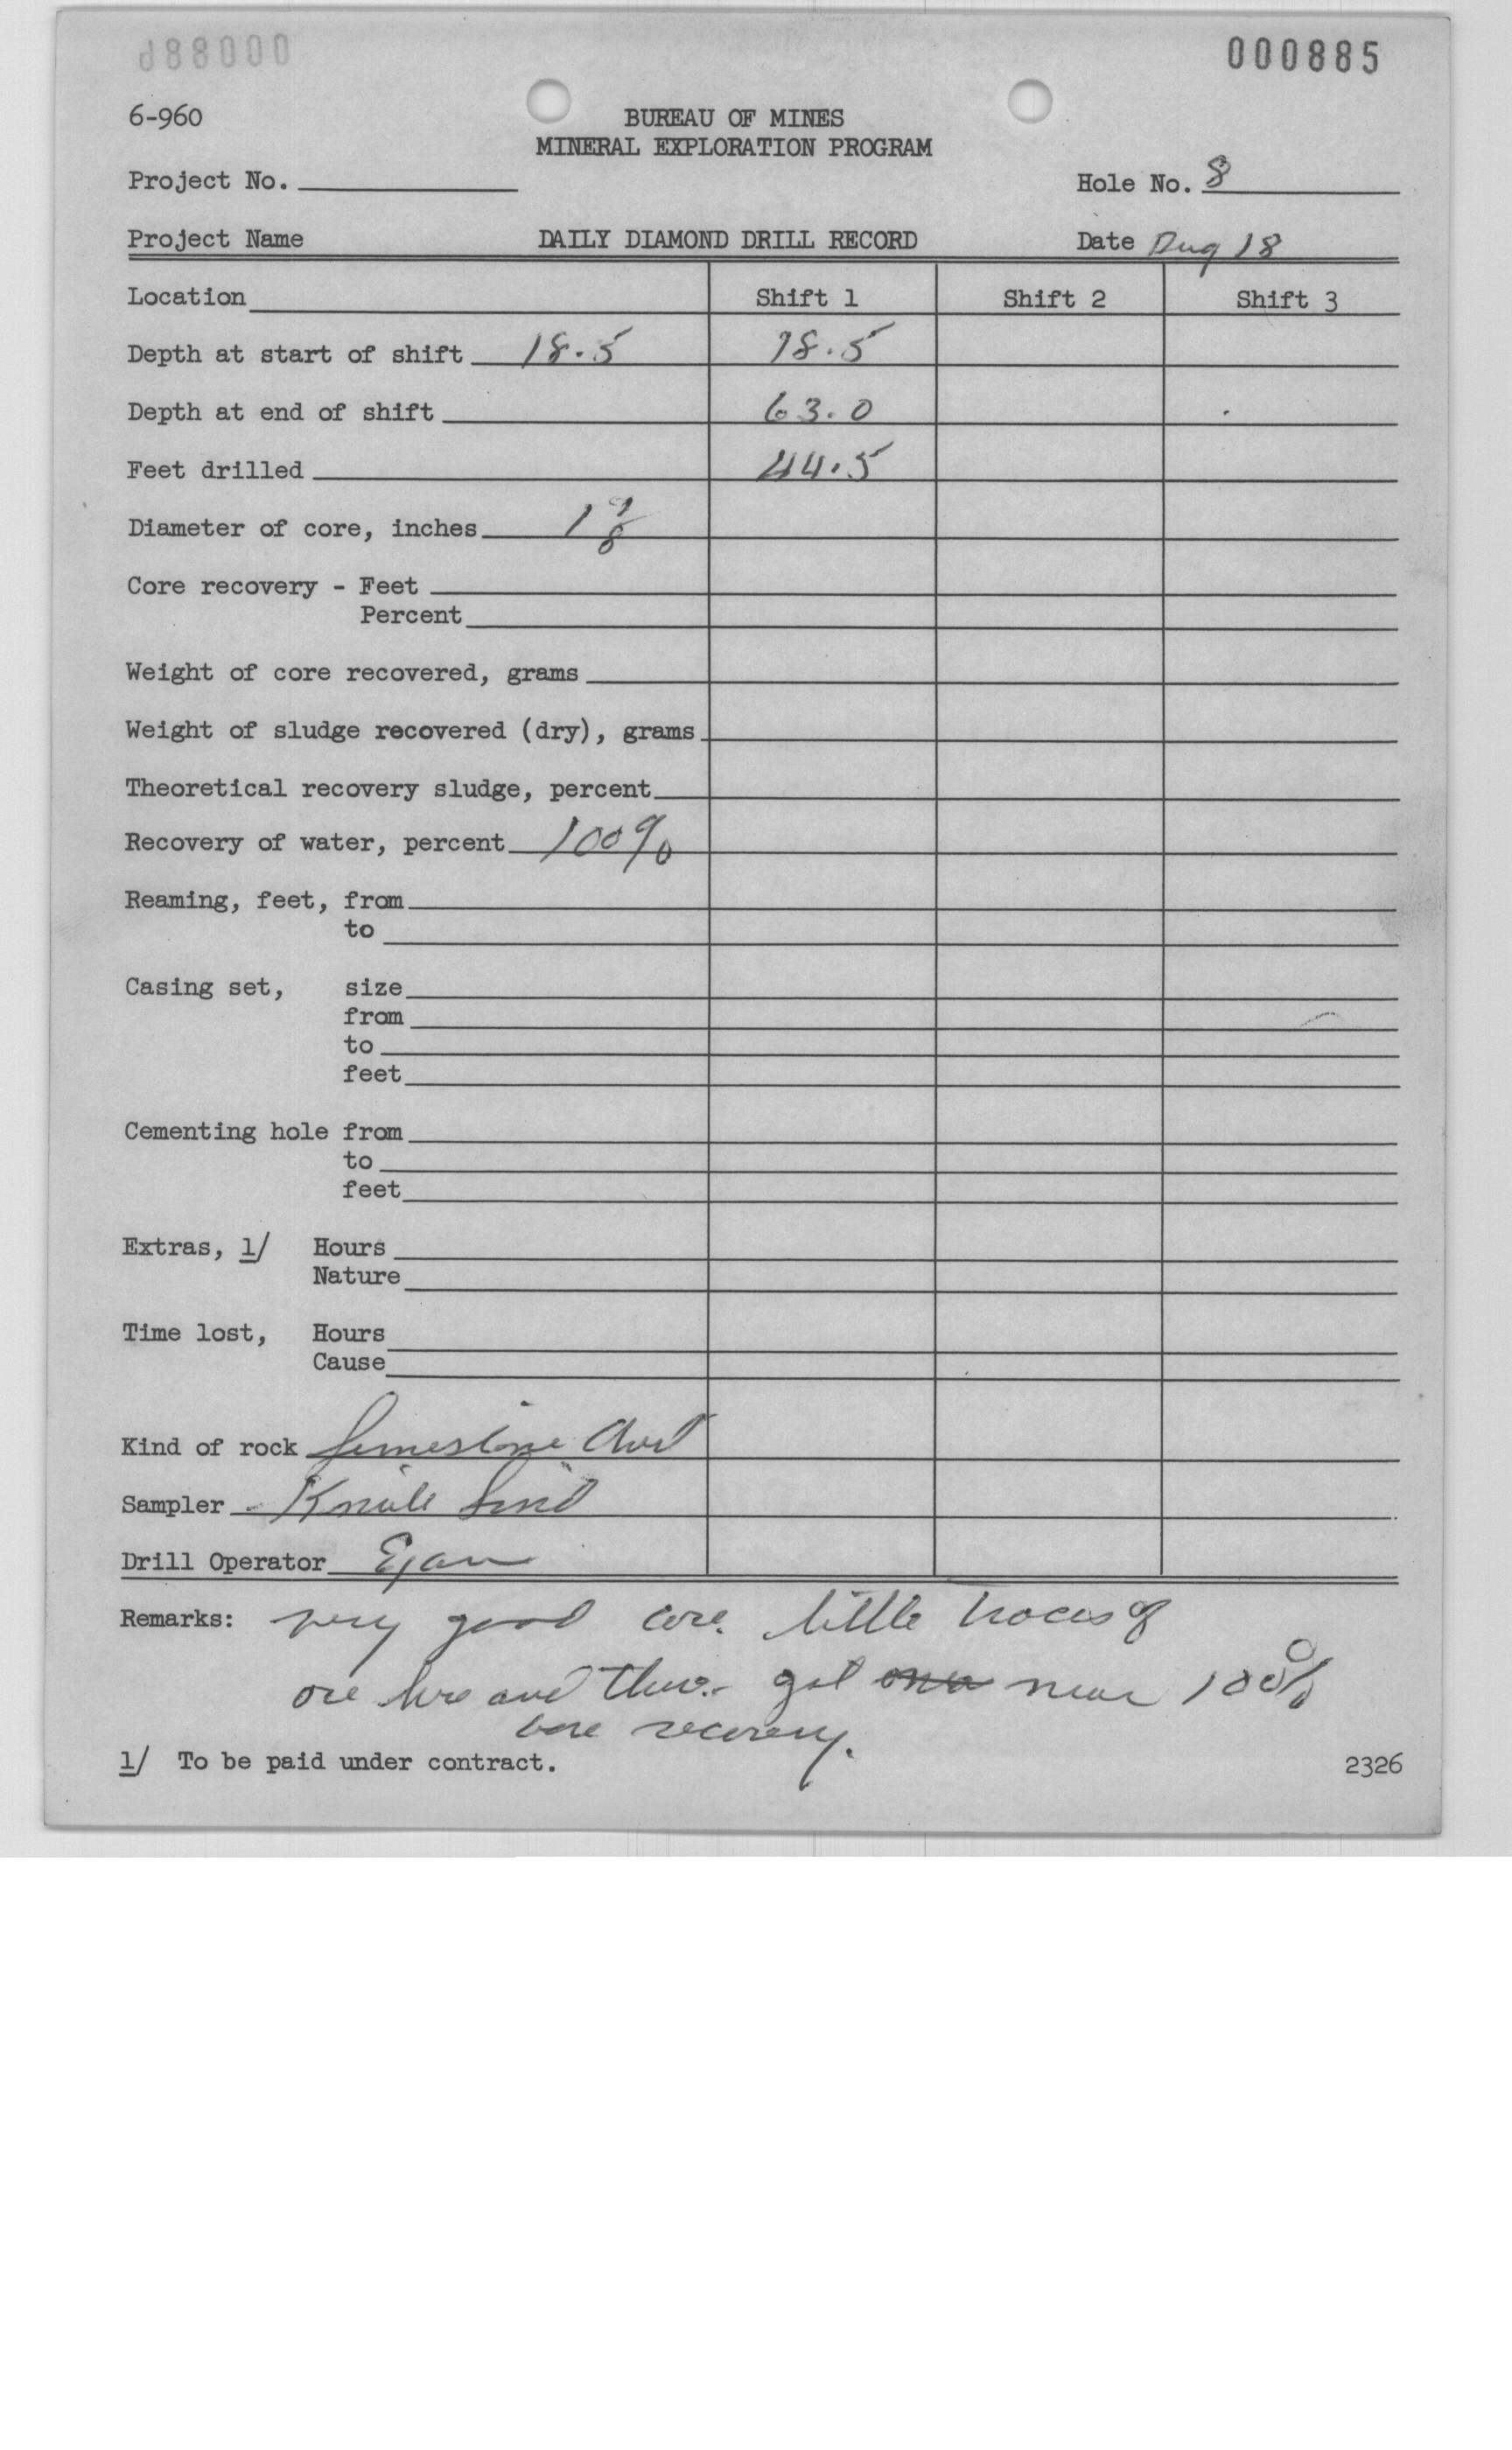 000885
6-960
BUREAU OF MINES
MINERAL EXPLORATION PROGRAM
Project No. Hole No. 8
Project Name DAILY DIAMOND DRILL RECORD Date Aug 18
Location Shift 1 Shift 2 Shift 3
Depth at start of shift 18.5 18.5
Depth at end of shift 63.0
Feet drilled 44.5
Diameter of core, inches 1 7/8
Core recovery - Feet
Percent
Weight of core recovered, grams
Weight of sludge recovered (dry), grams
Theoretical recovery sludge, percent
Recovery of water, percent 100%
Reaming, feet, from
to
Casing set, size
from
to
feet
Cementing hole from
to
feet
Extras, 1/ Hours
Nature
Time lost, Hours
Cause
Kind of rock Limestone Chert
Sampler
Drill Operator
Remarks: very good core. little traces of
ore here and there. got near 100%
core recovery.
1/ To be paid under contract. 2326